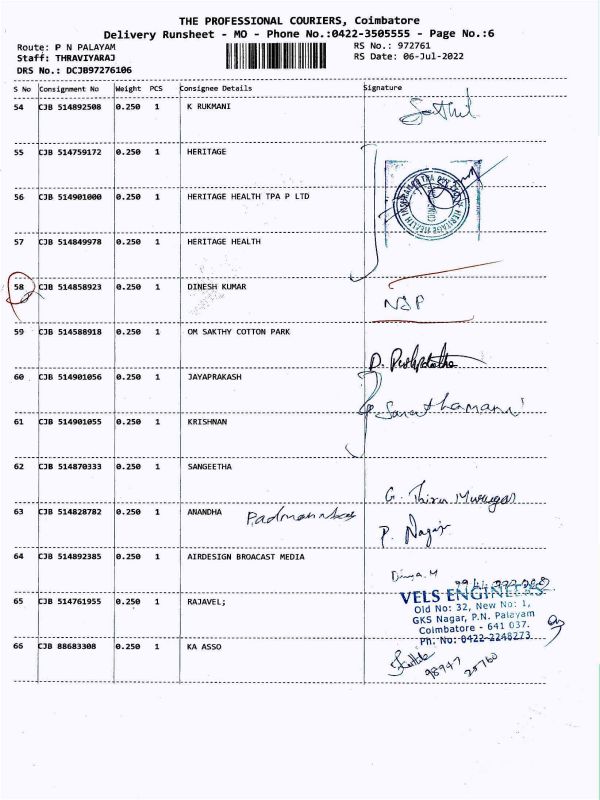 THE PROFESSIONAL COURIERS, Coimbatore
Delivery Runsheet - MO - Phone No.:0422-3505555 - Page No.:6
Route: P N PALAYAM RS No.: 972761
Staff: THRAVIYARAJ RS Date: 06-Jul-2022
DRS No.: DCJB97276106
S No Consignment No Weight PCS Consignee Details Signature
54 CJB 514892508 0.250 1 K RUKMANI Senthil
55 CJB 514759172 0.250 1 HERITAGE
56 CJB 514901000 0.250 1 HERITAGE HEALTH TPA P LTD
57 CJB 514849978 0.250 1 HERITAGE HEALTH
58 CJB 514858923 0.250 1 DINESH KUMAR NSP
59 CJB 514588918 0.250 1 OM SAKTHY COTTON PARK
60 CJB 514901056 0.250 1 JAYAPRAKASH
61 CJB 514901055 0.250 1 KRISHNAN
62 CJB 514870333 0.250 1 SANGEETHA
G. Thiru Murugan
63 CJB 514828782 0.250 1 ANANDHA
P. Nagaj
64 CJB 514892385 0.250 1 AIRDESIGN BROACAST MEDIA
Divya. M
VELS ENGINEERS
65 CJB 514761955 0.250 1 RAJAVEL; Old No: 32, New No: 1,
GKS Nagar, P.N. Palayam
Coimbatore - 641 037.
Ph. No: 0422-2248273
66 CJB 88683308 0.250 1 KA ASSO
98947